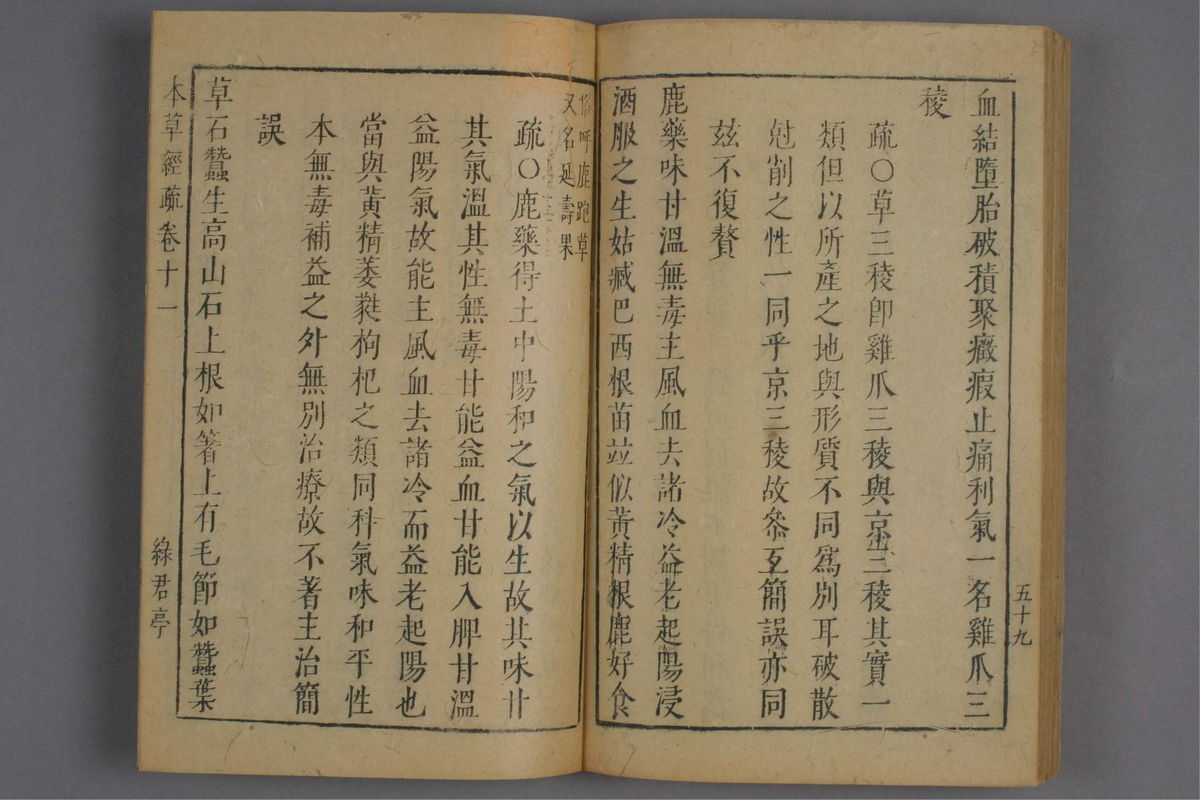 血結墮胎破積聚癥瘕止痛利氣一名雞爪三
稜
疏○草三稜卽雞爪三稜與京三稜其實一
類但以所產之地與形質不同爲別耳破散
尅削之性一同乎京三稜故叅互簡誤亦同
玆不復贅
鹿藥味甘溫無毒主風血去諸冷益老起陽浸
酒服之生姑臧巴西根苗竝似黃精根鹿好食
俗呼鹿跑草
又名延壽果
疏○鹿藥得土中陽和之氣以生故其味甘
其氣溫其性無毒甘能益血甘能入脾甘溫
益陽氣故能主風血去諸冷而益老起陽也
當與黃精萎蕤枸杞之類同科氣味和平性
本無毒補益之外無別治療故不著主治簡
誤
草石蠶生高山石上根如箸上有毛節如蠶葉
本草經疏卷十一
綠君亭
五十九